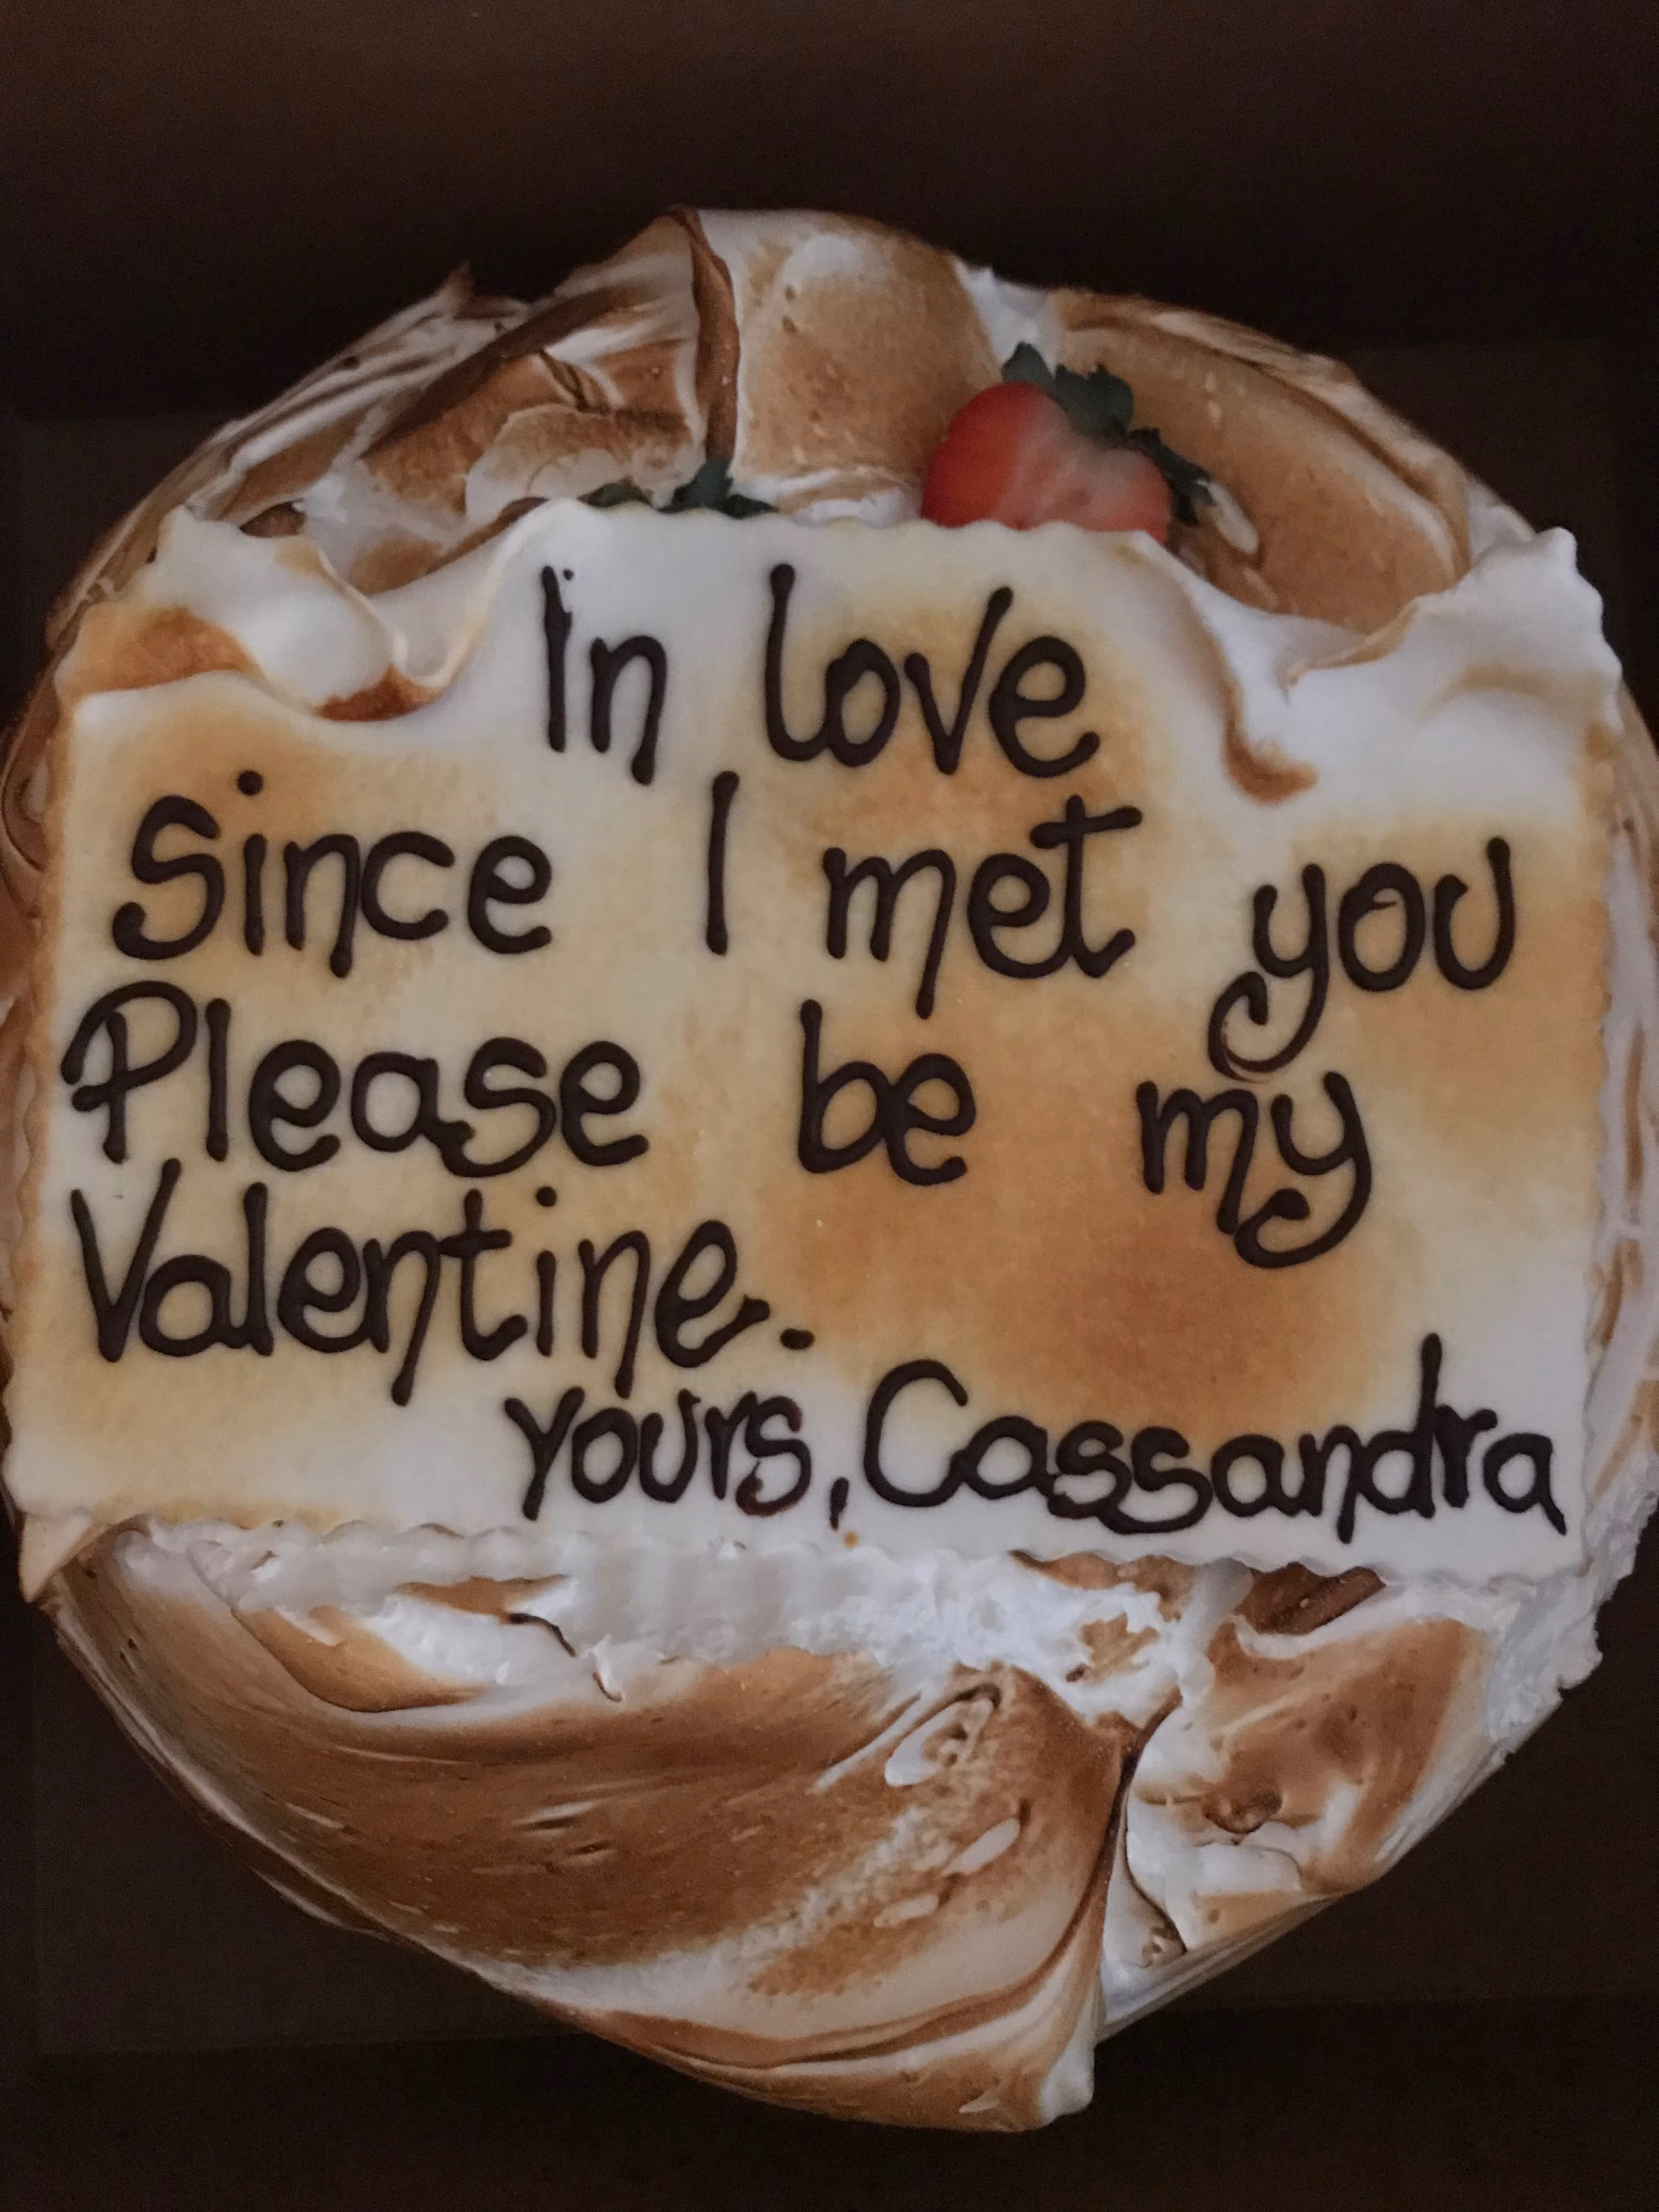 In love
Since I met you
Please be my
Valentine.
yours, Cassandra